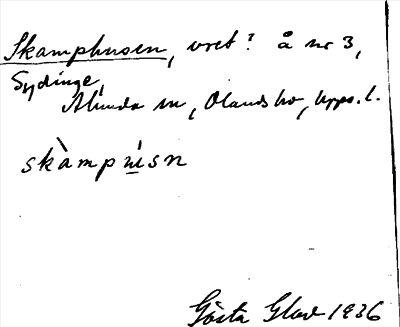 Skamphusen, vret? å nr 3,
Sydinge,
Alunda sn, Olands hd, Upps. l.
skàmpú̲sn
Gösta Glav 1936